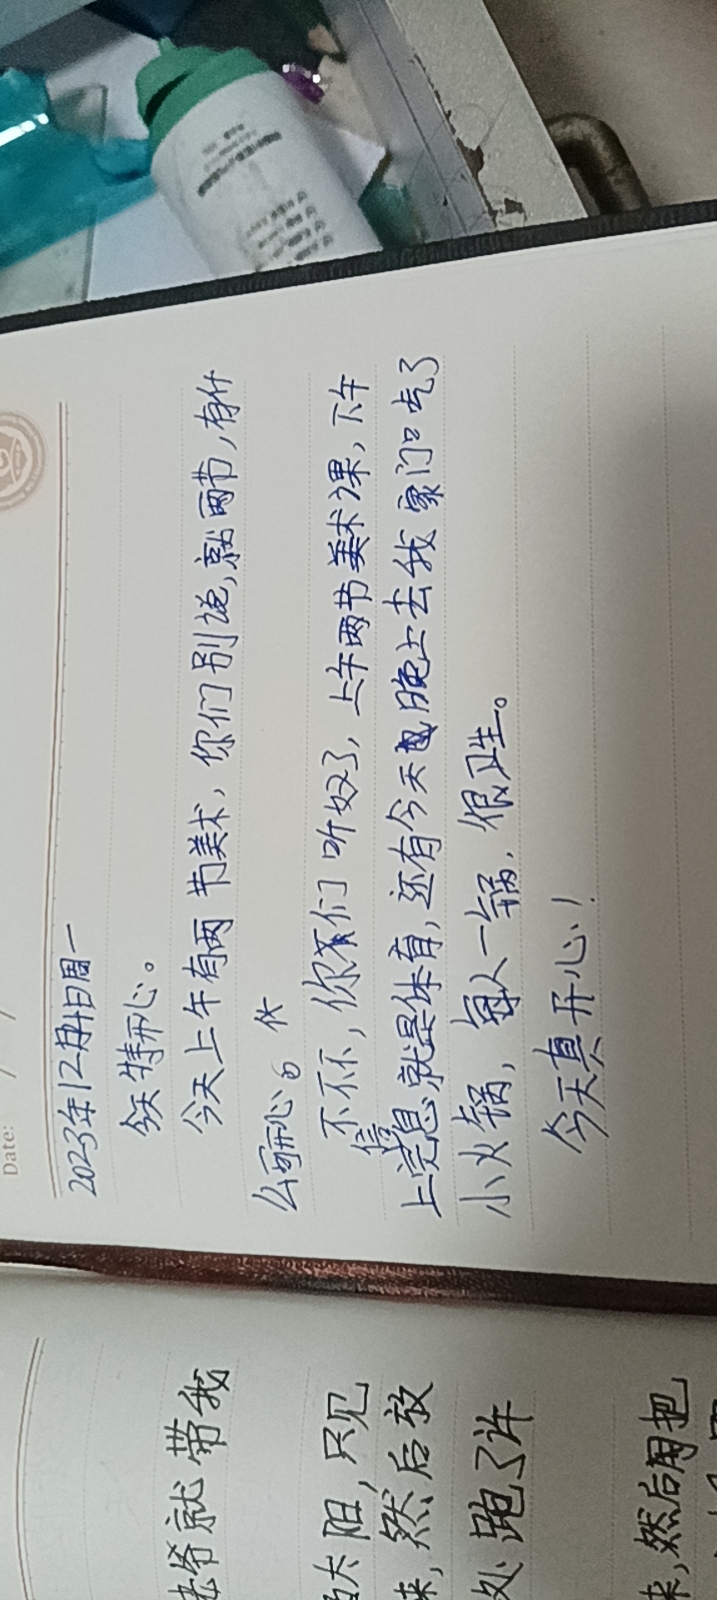 Date: / /
2023年12月4日周一
今天特开心。
今天上午有两节美术，你们别说，就两节，有什
么可开心的
不不不，你们听好了，上午两节美术课，下午
上完信息就是体育，还有今天晚上去我家门口吃了
小火锅，每人一锅，很卫生。
今天真开心！
爷就带我
太阳，只见
来，然后放
处跑了许
来，然后用把